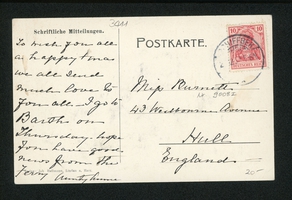 3011
Schriftliche Mitteilungen.
To wish you all
a happy Xmas
we all send
much love to
you all. I go to
Barth on
Thursday. hope
you have good
news from the
Ferry
POSTKARTE.
10 10
Miss Burnett
43 Westbourne Avenue
Hull
England
20-